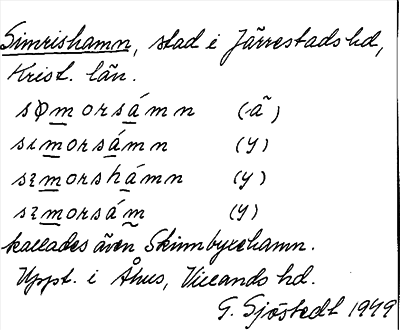 Simrishamn, stad i Järrestads hd,
Krist. län.
sømorsámn (ä)
sımorsámn (y)
sɛmorshámn (y)
sɛmorsám (y)
kallades även Skinnbyxehamn.
Uppt. i Åhus, Villands hd.
G. Sjöstedt 1949